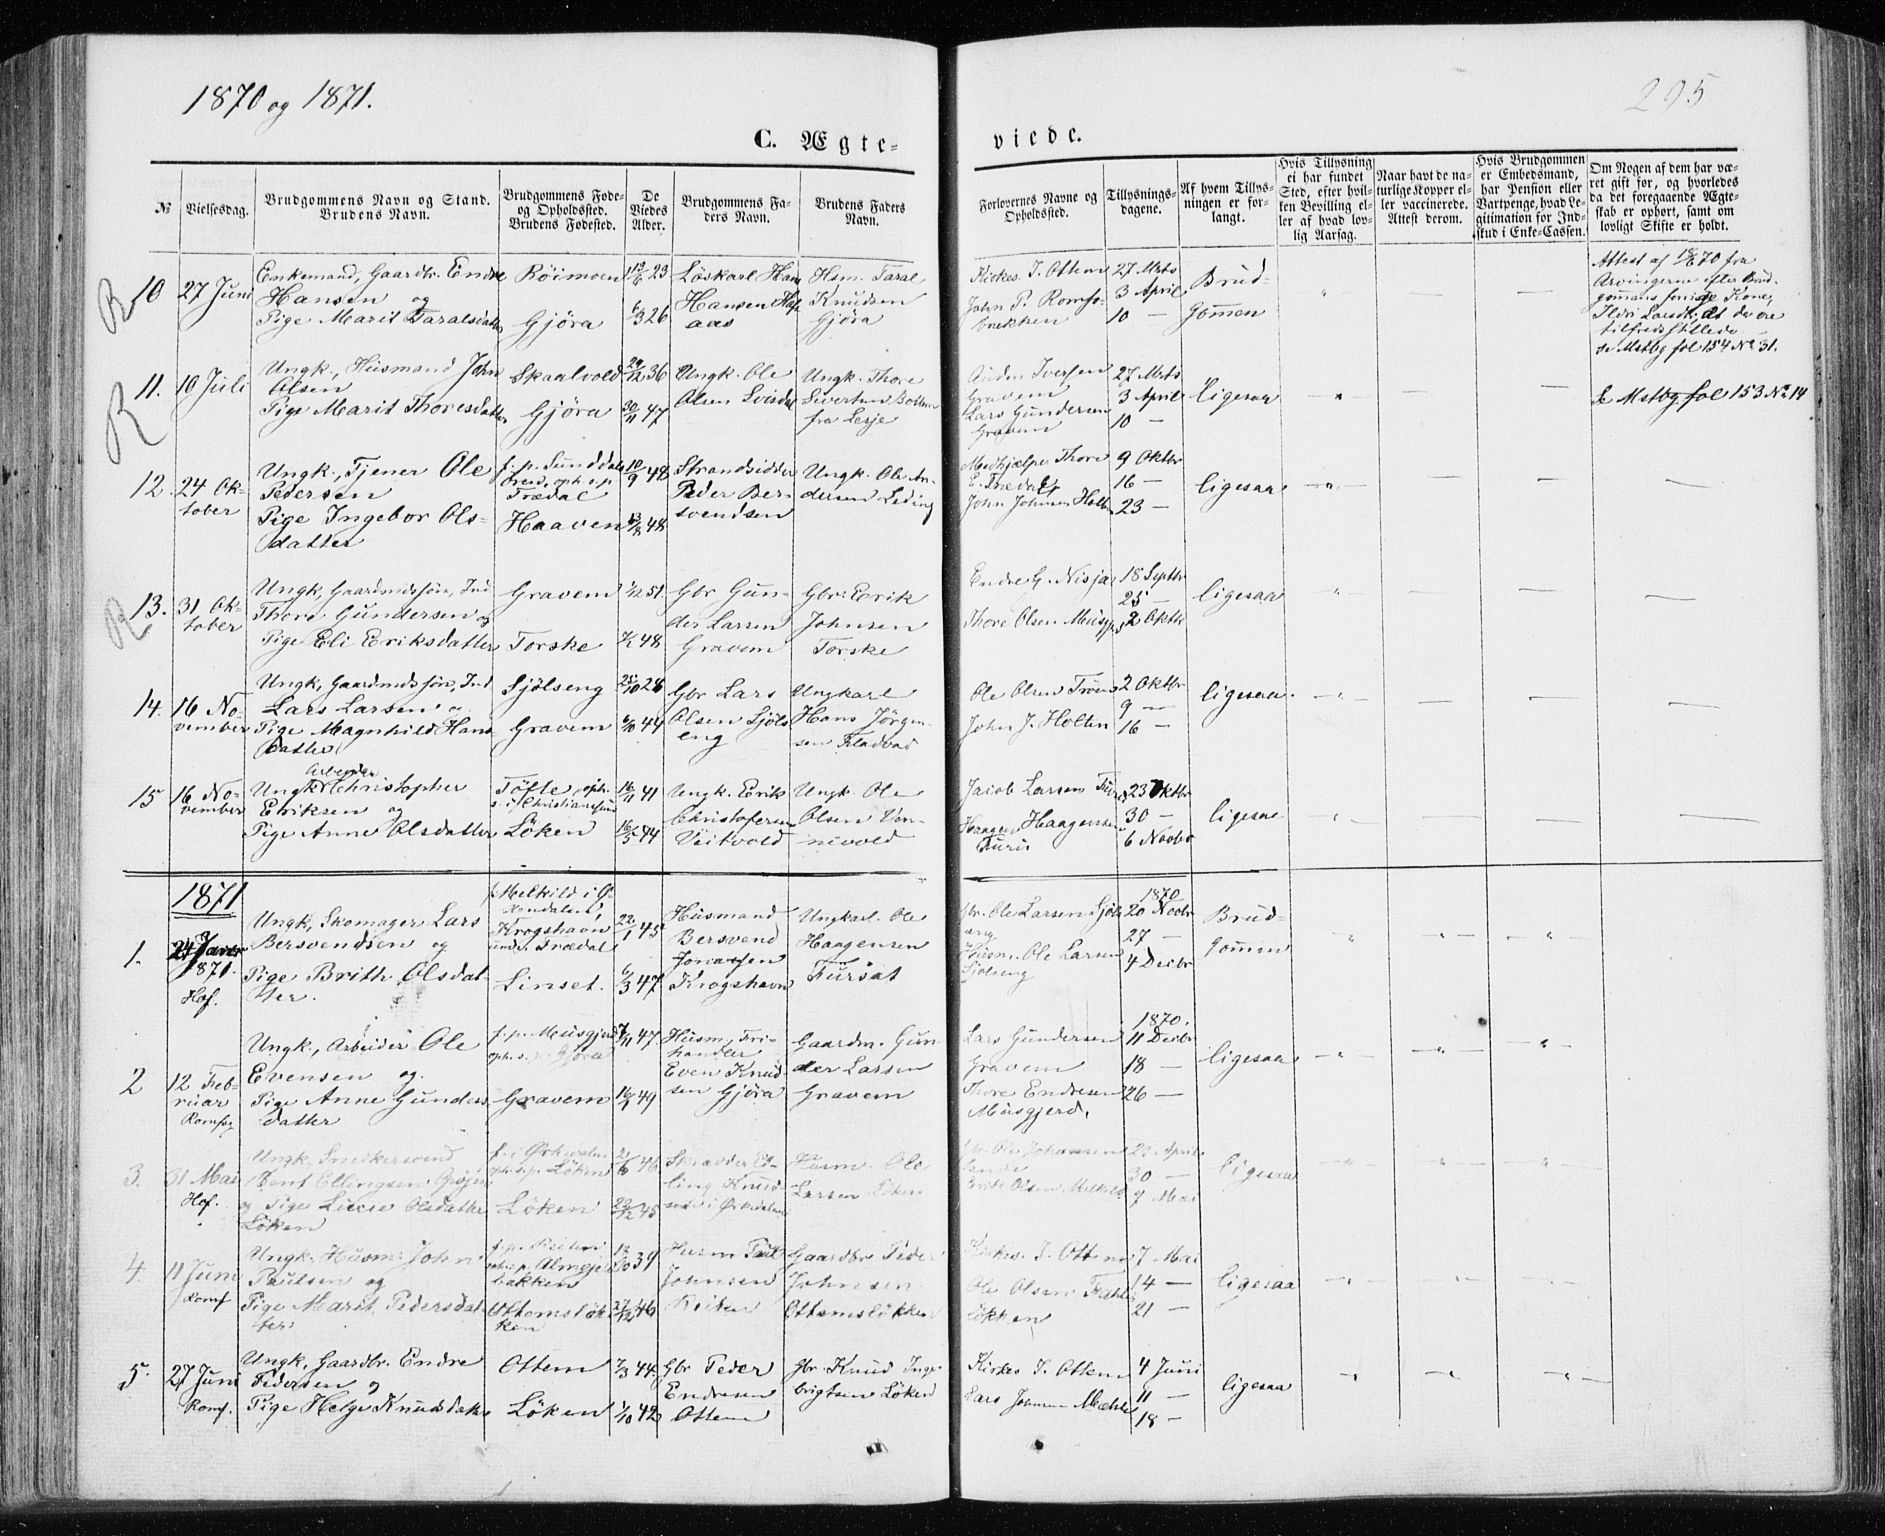 1870 og 1871.
295
C. Ægte-
viede.
№
Vielsesdag.
Brudgommens Navn og Stand.
Brudens Navn.
Brudgommens Føde-
og Opholdssted.
Brudens Fødested.
De
Viedes
Alder.
Brudgommens Fa-
ders Navn.
Brudens Faders
Navn.
Forlovernes Navne og
Opholdssted.
Tillysnings-
dagene.
Af hvem Tillys-
ningen er for-
langt.
Hvis Tillysning
ei har fundet
Sted, efter hvil-
ken Bevilling el-
ler af hvad lov-
lig Aarsag.
Naar havt de na-
turlige Kopper el-
ler vaccinerede.
Attest derom.
Hvis Brudgommen
er Embedsmand,
har Pension eller
Vartpenge, hvad Le-
gitimation for Ind-
skud i Enke-Cassen.
Om Nogen af dem har væ-
ret gift før, og hvorledes
da det foregaaende Ægte-
skab er ophørt, samt om
lovligt Skifte er holdt.
R 10
27 Juni
Enkemand, Gaardbr. Endre
Hansen og
Pige Marit Taralsdatter
Röimoen
Gjöra
23
6/3 26
Löskarl Hans
Hansen
aas
Hsm. Taral
Knudsen
Gjöra
Kirkes. J. Ottem
John P. Romfo-
brekken
27 Mrts
3 April
10 —
Brud-
gomen
Attest af 70 fra
Arvingerne efter Brud-
gomans forrige Kone,
Ildri Larsdt. at de ere
tilfredsstillede
se Mstbg fol 154 No 31.
R 11.
10 Juli
Ungk., Husmand John
Olsen
Pige Marit Thoresdatter
Skaalvold
Gjöra
29/12 36
30/11 47
Ungk. Ole
Olsen Svisdal
Ungk. Thore
Sivertsen Bottem
fra Lesje
Anden Iversen
Gravem
Lars Gundersen
Gravem
27 Mrts
3 April
10 —
ligesaa
Se Mstbg fol 153 No 14
12.
24 Ok-
tober
Ungk., Tjener Ole
Pedersen
Pige Ingebor Ols-
datter
f. p. Sunddals
ören, oph. s. p.
Trædal
Haaven
10/9 48
13/8 48
Strandsidder
Peder Ber-
svendsen
Ungk. Ole An-
dersen Leding
Medhjælper Thore
E. Trædal,
John Johnsen Holten
9 Oktbr
16 —
23 —
ligesaa
R 13.
31 Ok-
tober
Ungk, Gaardmdssön, Ind.
Thore Gundersen og
Pige Eli Eriksdatter
Gravem
Torske
1/12 51
48
Gbr Gun-
der Larsen
Gravem
Gbr. Erik
Johnsen
Torske
Endre G. Nisja
Thore Olsen Musgj.
18 Septbr
25 —
2 Oktbr
ligesaa
14.
16 No-
vember
Ungk, Gaardmdssön, Ind.
Lars Larsen og
Pige Magnhild Hans
datter
Sjölseng
Gravem
28
6/10 44
Gbr Lars
Olsen Sjöls
eng
Ungkarl
Hans Jörgen-
sen Fladvad
Ole Olsen Tröen
John J. Holten
2 Oktbr
9 —
16 —
ligesaa.
15
16 No-
vember
Arbeider
Ungk. Christopher
Eriksen og
Pige Anne Olsdatter
Töfte, oph.
s. i Christianssund
Löken
16/11 41
16/5 44
Ungk. Erik
Christofersen
Veitvold
Ungk. Ole
Olsen Ven-
nevold
Jacob Larsen Furu
Haagen Haagensen
Furu
23 Oktbr
30 —
6 Novbr
ligesaa
1871
1.
24 Janr
1871.
Hof.
Ungk, Skomager Lars
Bersvendsen og
Pige Brith Olsdat
ter.
f. Melkild i Ö-
xendalen,
Krogshavn
und. Trædal
Linset.
22/1 45
6/3 47
Husmand
Bersvend
Jonassen
Krogshavn
Ungkarl. Ole
Haagensen
Fursat
Gbr. Ole Larsen Sjöls
eng
Husm. Ole Larsen
Sjölseng
1870
20 Novbr
27 —
4 Decbr
Brud-
gomen
2
12 Feb-
ruar
Romfog
Ungk, Arbeider Ole
Evensen og.
Pige Anne Gunders
datter
f. p. Musgjerd
oph. s. p. Gjöra
Gravem
7/11 47
49
Husm, Fri-
handler
Even Knud
sen Gjöra
Gaardm. Gun
der Larsen
Gravem
Lars Gundersen
Gravem
Thore Endresen
Musgjerd.
1870.
11 Decbr
18 —
26 —
ligesaa
3.
31 Mai
Hof.
Ungk. Snedkersvend
Bent Ellingsen Gröset
og Pige Lucie Olsdatter
Löken
f. i Örkedalen
oph. s. p. Löken
Löken
46
22/12 45
Skrædder El-
ling Knud-
sen i Örkedalen
Husm. Ole
Larsen Löken
Gbr. Ole Johansen
Erik Olsen Melkild
April
30 —
7 Mai
ligesaa
4.
11 Juni
Romf
Ungk. Husm. John
Paulsen og
Pige Marit Pedersdat
ter
bakken
Ottemslök
ken
39
27/12 46
Husm Paul
Johnsen
Gaardbr Peder
Johnsen
Ottemslökken
Kirkes. J. Ottem
Ole Olsen Fahle
lökken
7 Mai
14 —
21 —
ligesaa
5.
27 Juni
Romf.
Ungk, Gaardbr. Endre
Pedersen og
Pige Helge Knudsdatter
Ottem
Löken
7/3 44
1/10 42
Gbr Peder
Endresen
Ottem
Gbr. Knud Inge-
brigtsen Löken
Kirkes J. Ottem
Lars Johnsen Mæhle
4 Juni
11 —
18 —
ligesaa